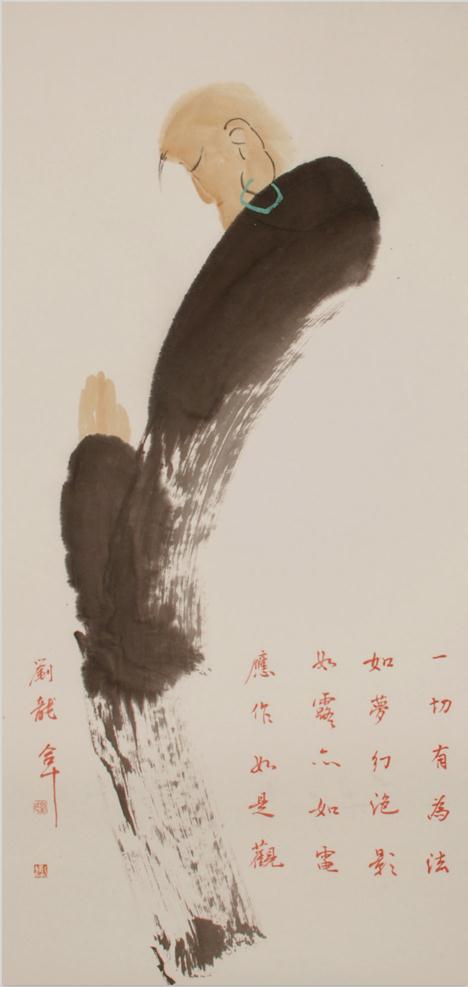 一切有為法
如夢幻泡影
如露亦如電
應作如是觀
劉龍